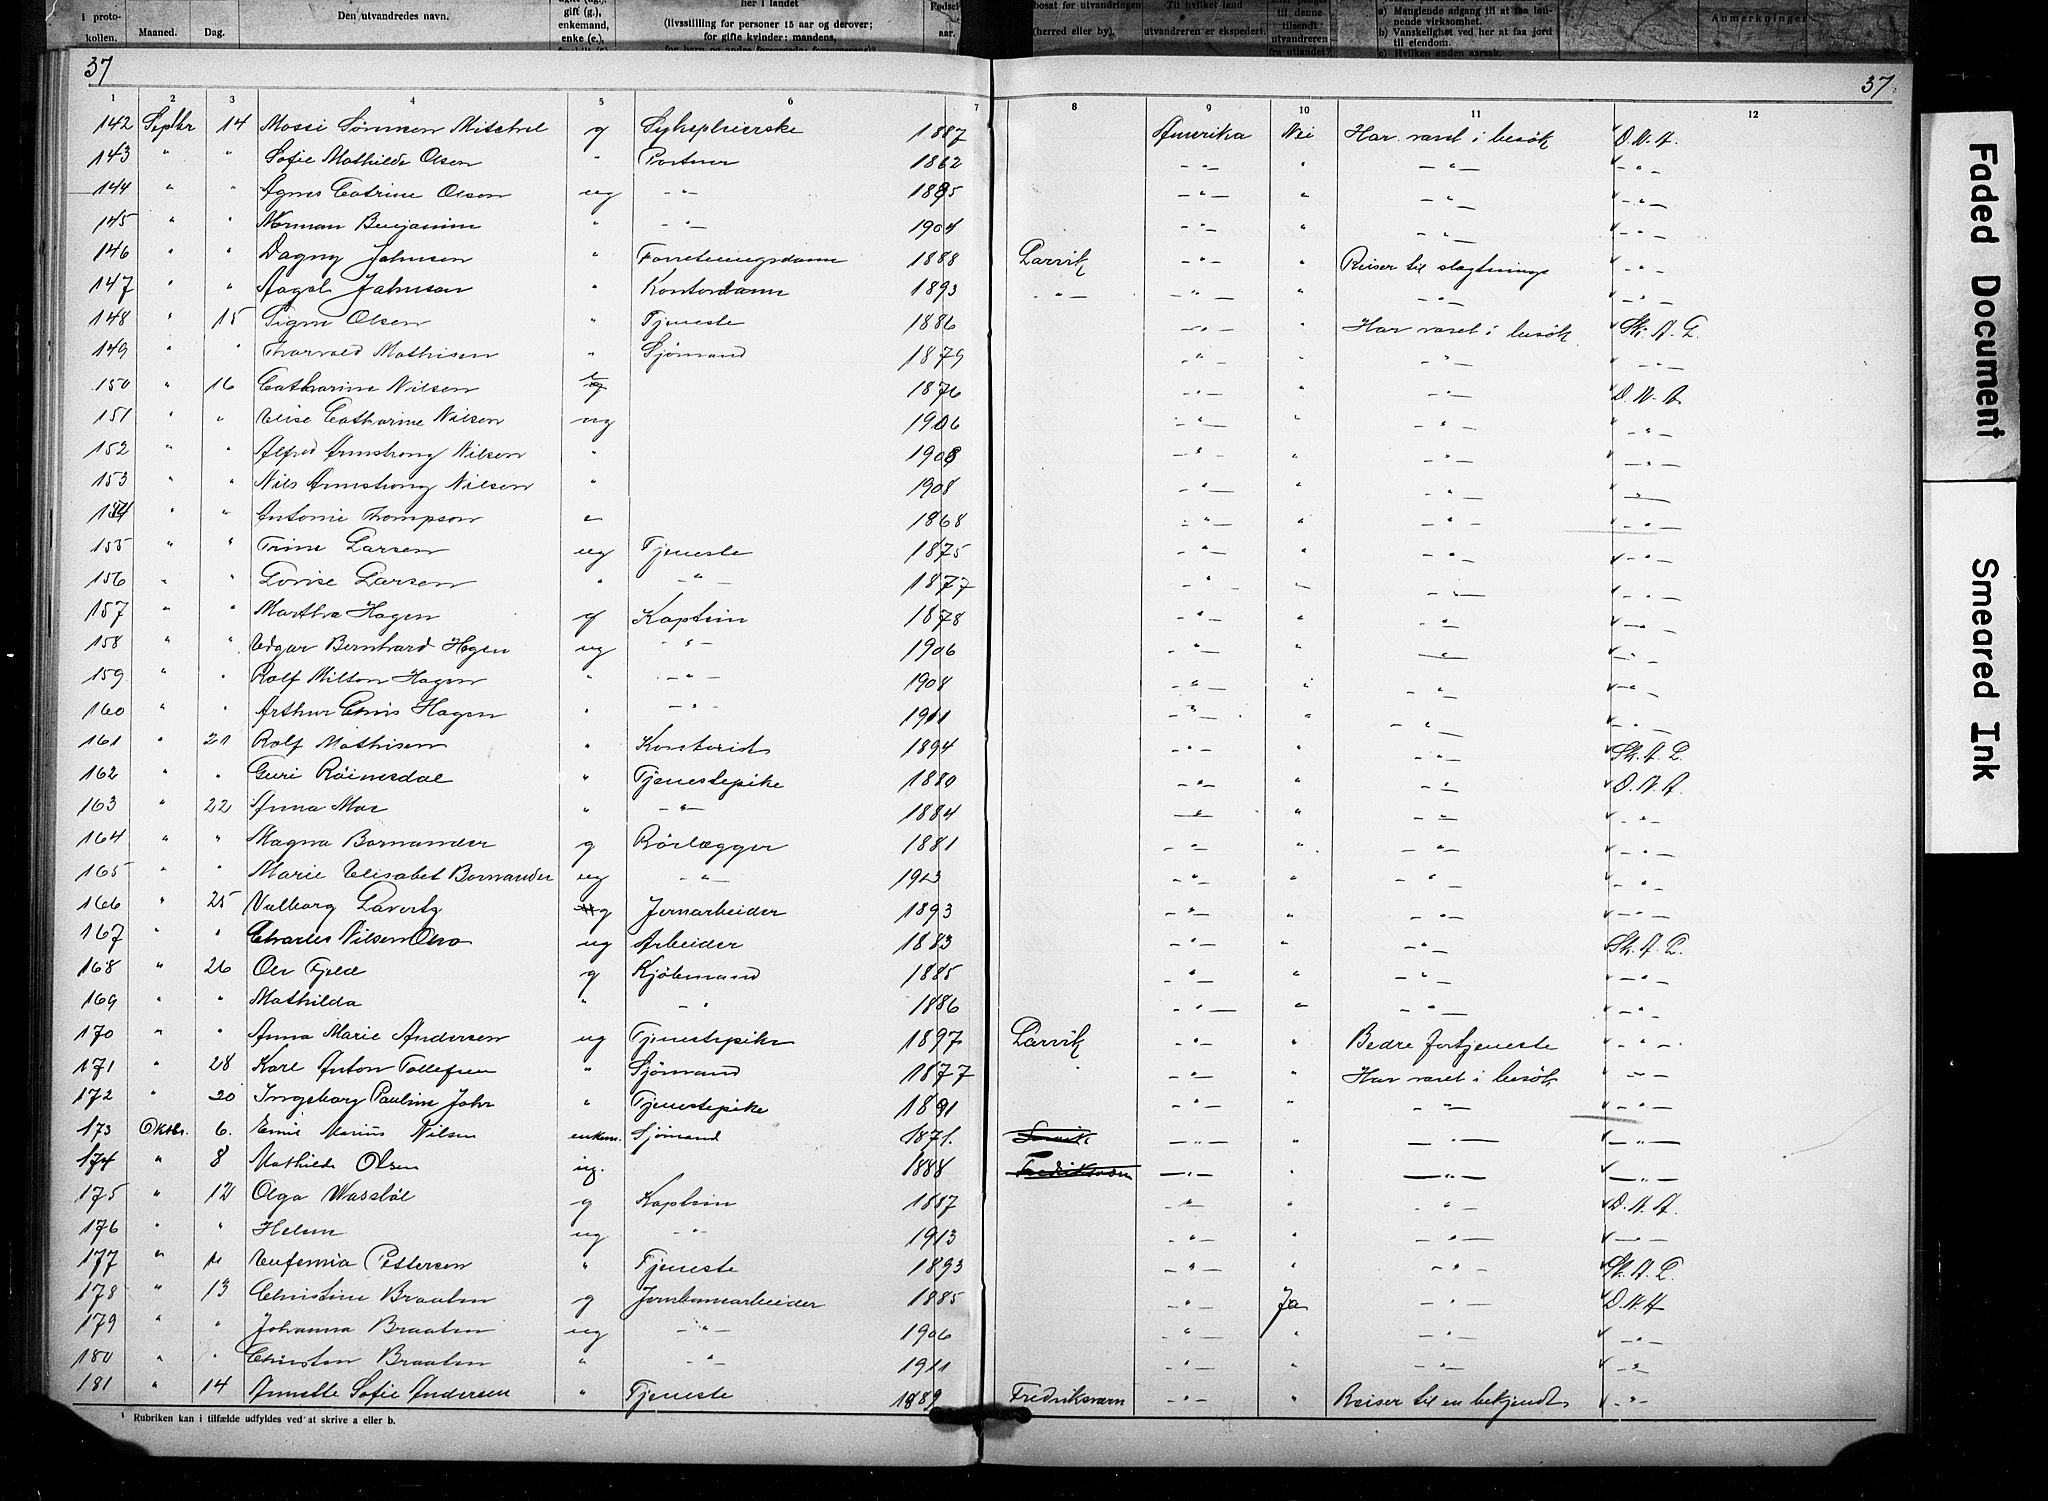 i proto-
kollen.
Maaned.
Dag.
Den utvandredes navn.
gift (g.),
enkemand,
enke (e.),
her i landet
(livsstilling for personer 15 aar og derover;
for gifte kvinder: mandens,
Fødsel
aar.
bosat før utvandringen
(herred eller by).
Til hvilket land
utvandreren er ekspedert.
til denne
tilsendt
utvandreren
fra utlandet?
a) Manglende adgang til at faa løn-
nende virksomhet.
b) Vanskelighet ved her at faa jord
til eiendom.
c) Hvilken anden aarsak.
Anmerkninger
37 37
1 2 3 4 5 6 7 8 9 10 11 12
142 Septbr 14 Mossi Sørensen Mitchel g Sykepleierske 1887 Amerika Nei Har været i besök D.N.A.
143 " " Sofie Mathilde Olsen " Portner 1862 -"- " -"- -"-
144 " " Agnes Catrine Olson ug -"- 1885 -"- " -"- -"-
145 " " Norman Benjamin " -"- 1904 -"- " -"- -"-
146 " " Dagny Johnsen " Forretningsdame 1888 Larvik -"- " Reiser til slegtninge -"-
147 " " Aagot Johnson " Kontordame 1893 -"- -"- " -"- -"-
148 " 15 Signe Olsen " Tjeneste 1886 -"- " Har været i besök Sk. A. L.
149 " " Thorvald Mathisen " Sjömand 1879 -"- " -"- -"-
150 " 16 Catharine Nilsen 1876 -"- " -"- D.N.A.
151 " " Elise Catharine Nilsen ug 1906 -"- " -"- -"-
152 " " Alfred Armstrong Nilsen " 1908 -"- " -"- -"-
153 " " Nils Armstrong Nilsen " 1908 -"- " -"- -"-
154 " " Antonie Thompson e 1868 -"- " -"- -"-
155 " " Trine Larsen ug Tjeneste 1875 -"- " -"- -"-
156 " " Lovise Larsen " -"- 1877 -"- " -"- -"-
157 " " Martha Hagen g Kaptein 1878 -"- " -"- -"-
158 " " Edgar Bernhard Hagen ug -"- 1906 -"- " -"- -"-
159 " " Rolf Milton Hagen " -"- 1908 -"- " -"- -"-
160 " " Arthur Chris Hagen " -"- 1911 -"- " -"- -"-
161 " 21 Rolf Mathisen " Kontorist 1894 -"- " -"- Sk. A. L.
162 " " Guri Röinesdal " Tjenestepike 1880 -"- " -"- D.N.A.
163 " 22 Anna Moe " -"- 1884 -"- " -"- -"-
164 " " Magna Bornander g Rörlægger 1881 -"- " -"- -"-
165 " " Marie Elisabet Bornander ug -"- 1913 -"- " -"- -"-
166 " 25 Valborg Lavertz g Jernarbeider 1893 -"- " -"- -"-
167 " " Charles Nilsen Ohro ug Arbeider 1883 -"- " -"- Sk. A. L.
168 " 26 Ole Fjeld g Kjöbmand 1885 -"- " -"- -"-
169 " " Mathilda " -"- 1886 -"- " -"- -"-
170 " " Anna Marie Andersen ug Tjenestepike 1897 Larvik -"- " Bedre fortjeneste -"-
171 " 28 Karl Anton Tollefsen " Sjömand 1877 " -"- " Har været i besök -"-
172 " 20 Ingeborg Pauline Johr " Tjenestepike 1891 -"- " -"- -"-
173 Oktbr. 6. Emil Marius Nilsen enkem. Sjömand 1871. Larvik -"- " -"- -"-
174 " 8 Mathilde Olsen ug. 1888 Fredriksværn -"- " -"- -"-
175 " 12 Olga Wassböl g Kaptein 1887 -"- " -"- D.N.A.
176 " " Helene ug -"- 1913 -"- " -"- -"-
177 " " Eufemia Pettersen " Tjeneste 1893 -"- " -"- Sk. A. L.
178 " 13 Christine Braaten g Jernbanearbeider 1885 -"- Ja -"- D.N.A
179 " " Johanna Braaten ug -"- 1906 -"- " -"- -"-
180 " " Christen Braaten " -"- 1911 -"- " -"- -"-
181 " 14 Annette Sofie Andersen " Tjeneste 1889 Fredriksværn -"- " Reiser til en bekjendt -"-
¹ Rubriken kan i tilfælde utfyldes ved at skrive a eller b.
Faded Document
Smeared Ink